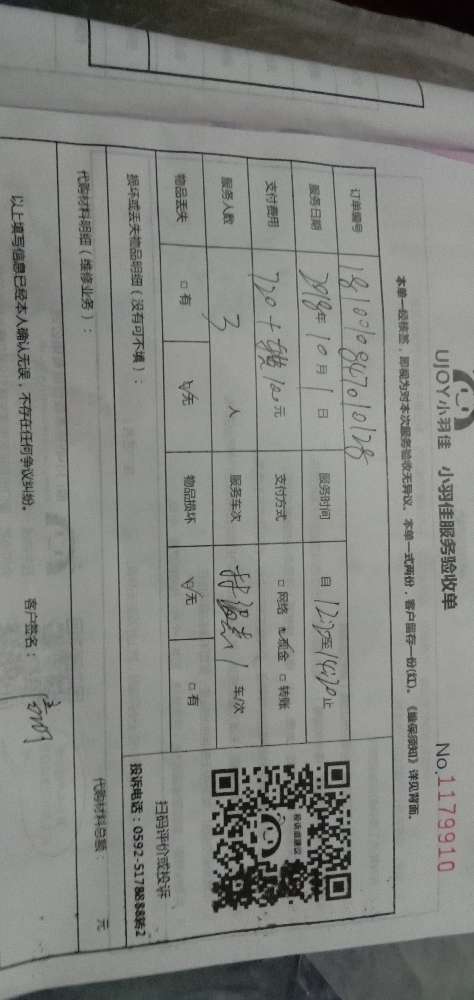 UJOY小羽佳 小羽佳服务验收单 No.1179910
本单一经核签，即视为对本次服务验收无异议。本单一式两份，客户留存一份(红)。《维保须知》详见背面。
订单编号 1810010847010128
服务日期 2018年10月1日 服务时间 自12:20至14:20止
支付费用 720+ 120元 支付方式 □网络 ☑现金 □转账
服务人数 3 人 服务车次 1 车/次
物品丢失 □有 ☑无 物品损坏 ☑无 □有
损坏或丢失物品明细（没有可不填）：
扫码评价或投诉
投诉电话：0592-5178888转2
代购材料明细（维修业务）： 代购材料总额： 元
以上填写信息已经本人确认无误，不存在任何争议纠纷。
客户签名：